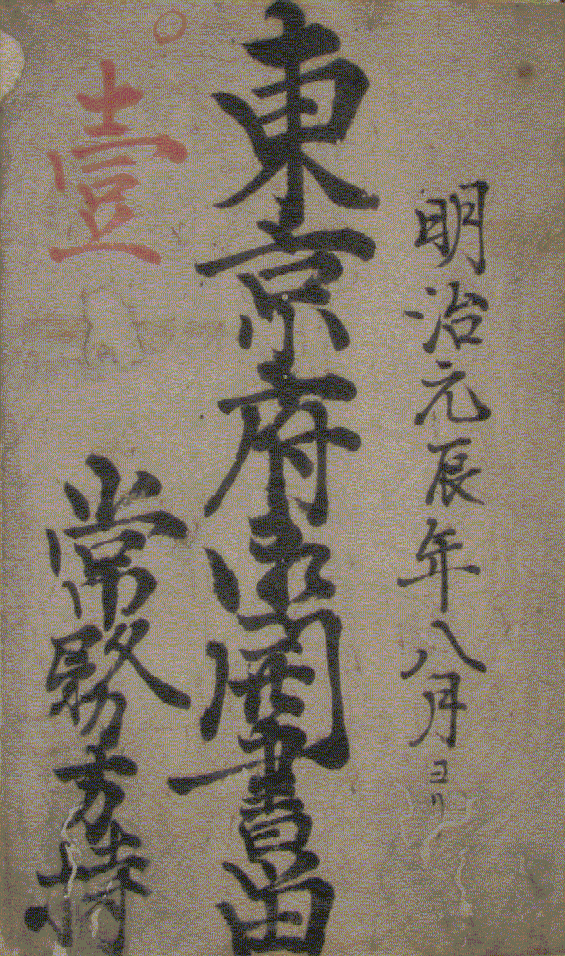 明治元辰年八月ヨリ
東京府御書
壹
常務方持